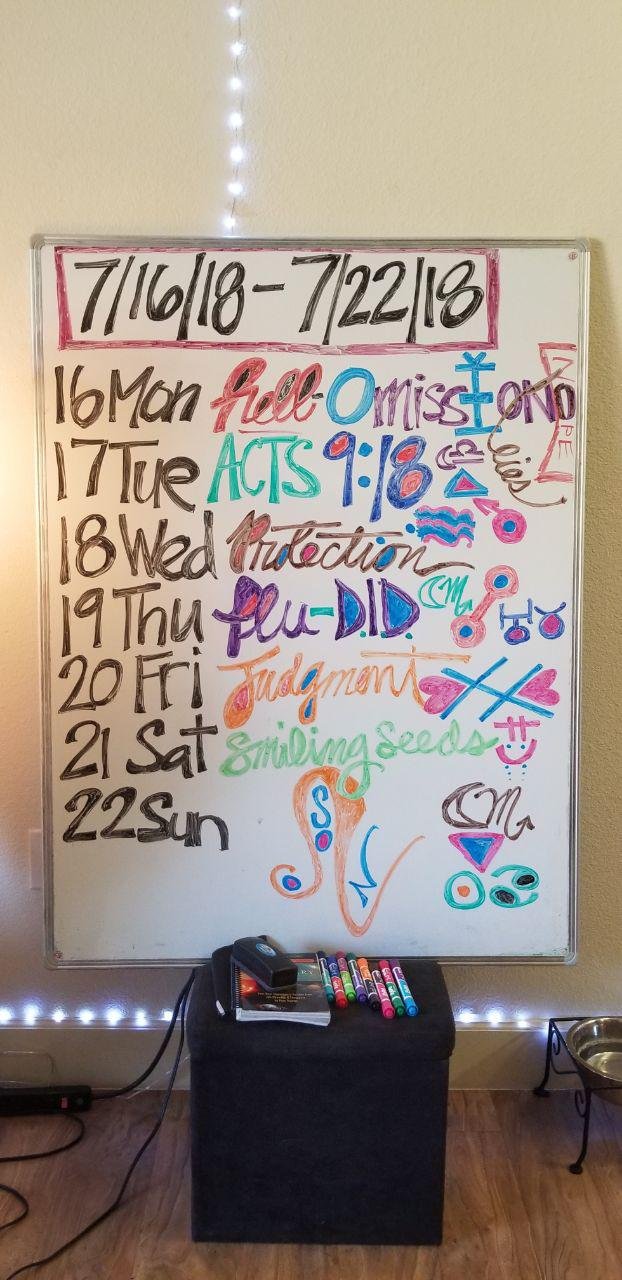 7/16/18 - 7/22/18
16 Mon hell-OmissIONO
lies
17 Tue ACTS 9:18
18 Wed Protection
19 Thu flu-D.I.D.
20 Fri Judgment
21 Sat Smiling Seeds
22 Sun